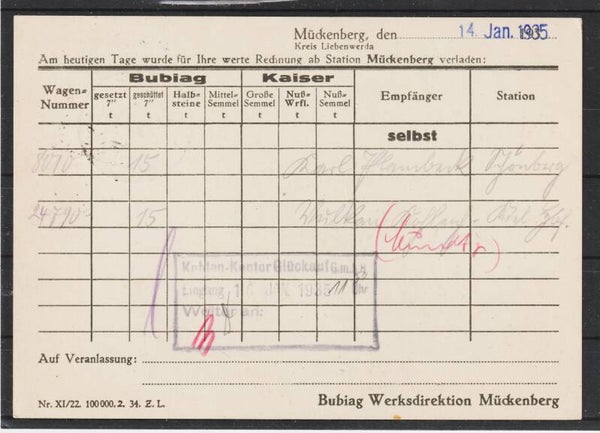 Mückenberg, den 14 Jan. 1935
Kreis Liebenwerda
Am heutigen Tage wurde für Ihre werte Rechnung ab Station Mückenberg verladen:
Wagen-Nummer Bubiag Kaiser Empfänger Station
gesetzt 7" t geschüttet 7" t Halb-steine t Mittel-Semmel t Große Semmel t Nuß-Wrfl. t Nuß-Semmel t
selbst
8010 15 Karl Schönberg
24790 15 Vulkan Kiel
Kohlen-Kontor Glückauf G.m.b.H.
Eingang JAN 1935 11 Uhr
Weiter an:
Auf Veranlassung:
Nr. XI/22. 100000. 2. 34. Z. L.
Bubiag Werksdirektion Mückenberg